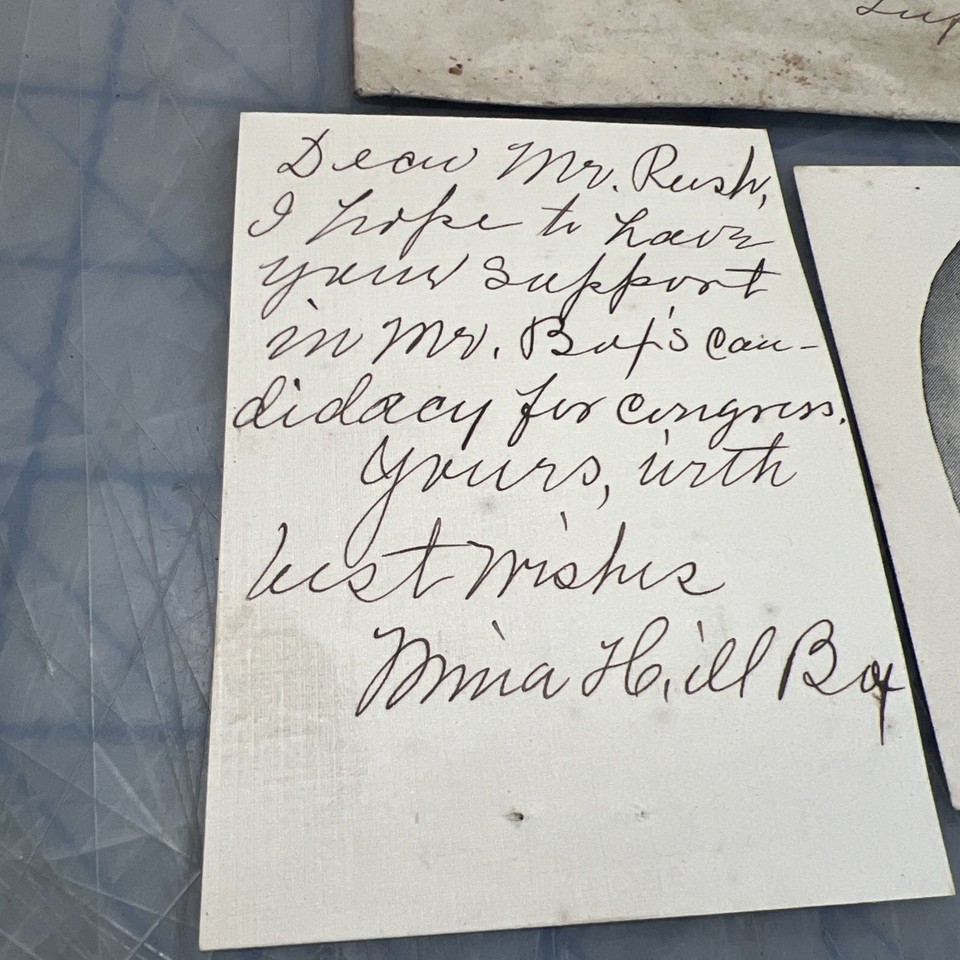 Dear Mr. Rush,
I hope to have
your support
in Mr. Box's can-
didacy for congress.
Yours, with
best wishes
Mina Hill Box